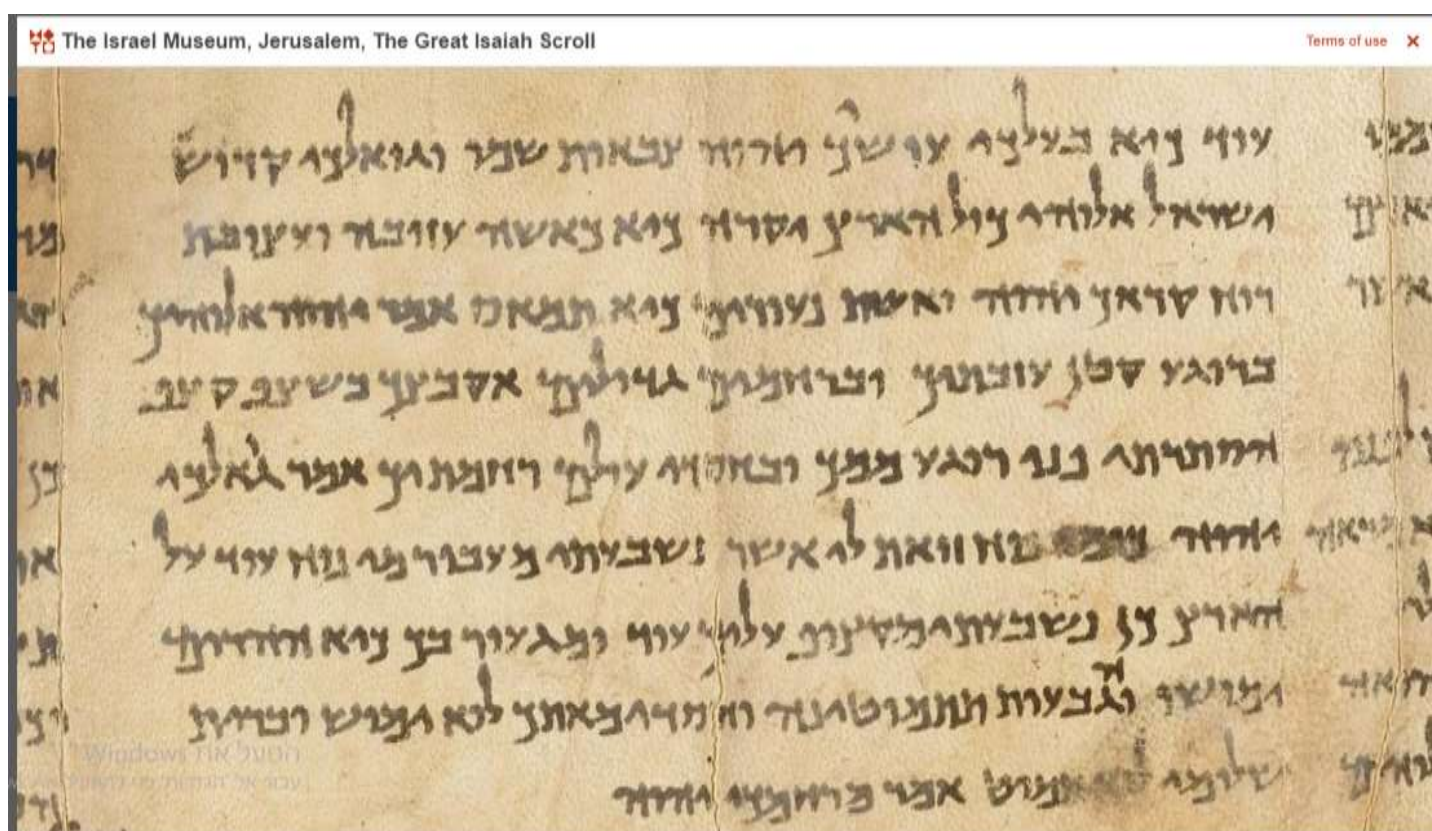 The Israel Museum, Jerusalem, The Great Isaiah Scroll
Terms of use
עוד כיא בעלכי עושכי יהוה צבאות שמו וגואלכי קדוש
ישראל אלוהי כול הארץ יקרה כיא כאשה עזובה ועצובת
רוח קראך יהוה ואשת נעורים כיא תמאס אמר יהוה אלוהיך
ברוגע קטן עזבתיך וברחמים גדולים אקבצך בשצף קצף
הסתרתי פני רוגע ממך ובחסדי עולם רחמתיך אמר גואלכי
יהוה כימי נוח זואת לי אשר נשבעתי מעבור מי נוח עוד על
הארץ כן נשבעתי מקצוף עליך עוד ומגעור בך כיא ההרים
ימושו והגבעות תתמוטינה וחסדי מאתך לוא ימוש וברית
שלומי תמוט אמר מרחמכי יהוה
הפעל את Windows
עבור אל הגדרות כדי